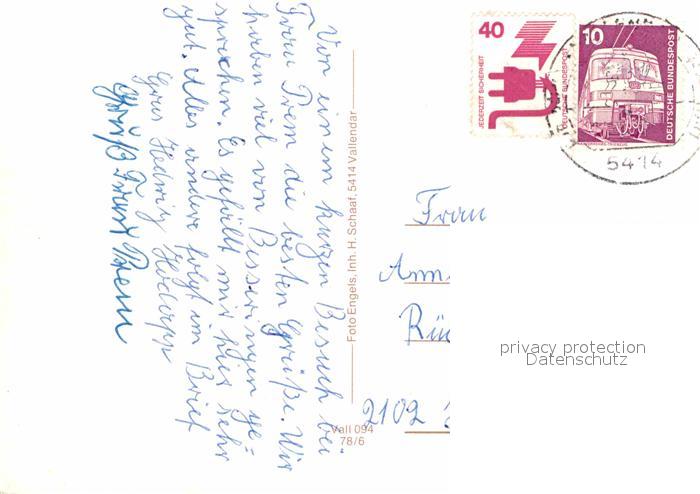 Von einem kurzen Besuch bei
Frau Prem die besten Grüße. Wir
haben viel von Besserungen ge=
sprochen. Es gefällt mir hier sehr
gut. Alles andere folgt im Brief
Grus Hedwig
Gruß Frau Prem
Foto Engels, Inh. H. Schaaf, 5414 Vallendar
Vall 094
78/6
40
JEDERZEIT SICHERHEIT
DEUTSCHE BUNDESPOST
10
DEUTSCHE BUNDESPOST
5414
Frau
Ann
Rü
2102
privacy protection
Datenschutz